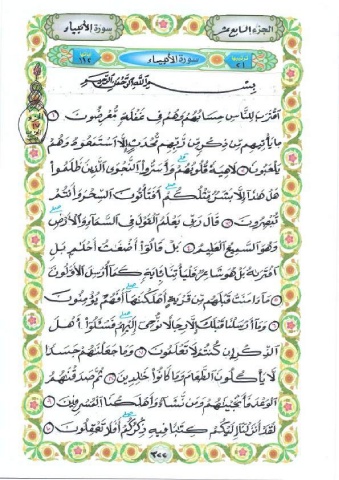 سورة الأنبياء
الجزء السابع عشر
ترتيبها ٢١
سورة الأنبياء
آياتها ١١٢
بسم الله الرحمن الرحيم
اقترب للناس حسابهم وهم في غفلة معرضون ١
ما يأتيهم من ذكر من ربهم محدث إلا استمعوه وهم
يلعبون ٢ لاهية قلوبهم وأسروا النجوى الذين ظلموا
هل هذا إلا بشر مثلكم أفتأتون السحر وأنتم
تبصرون ٣ قال ربي يعلم القول في السماء والأرض
وهو السميع العليم ٤ بل قالوا أضغاث أحلام بل
افتراه بل هو شاعر فليأتنا بآية كما أرسل الأولون
٥ ما آمنت قبلهم من قرية أهلكناها أفهم يؤمنون
٦ وما أرسلنا قبلك إلا رجالا نوحي إليهم فسئلوا أهل
الذكر إن كنتم لا تعلمون ٧ وما جعلناهم جسدا
لا يأكلون الطعام وما كانوا خالدين ٨ ثم صدقناهم
الوعد فأنجيناهم ومن نشاء وأهلكنا المسرفين ٩
لقد أنزلنا إليكم كتابا فيه ذكركم أفلا تعقلون ١٠
٣٢٢